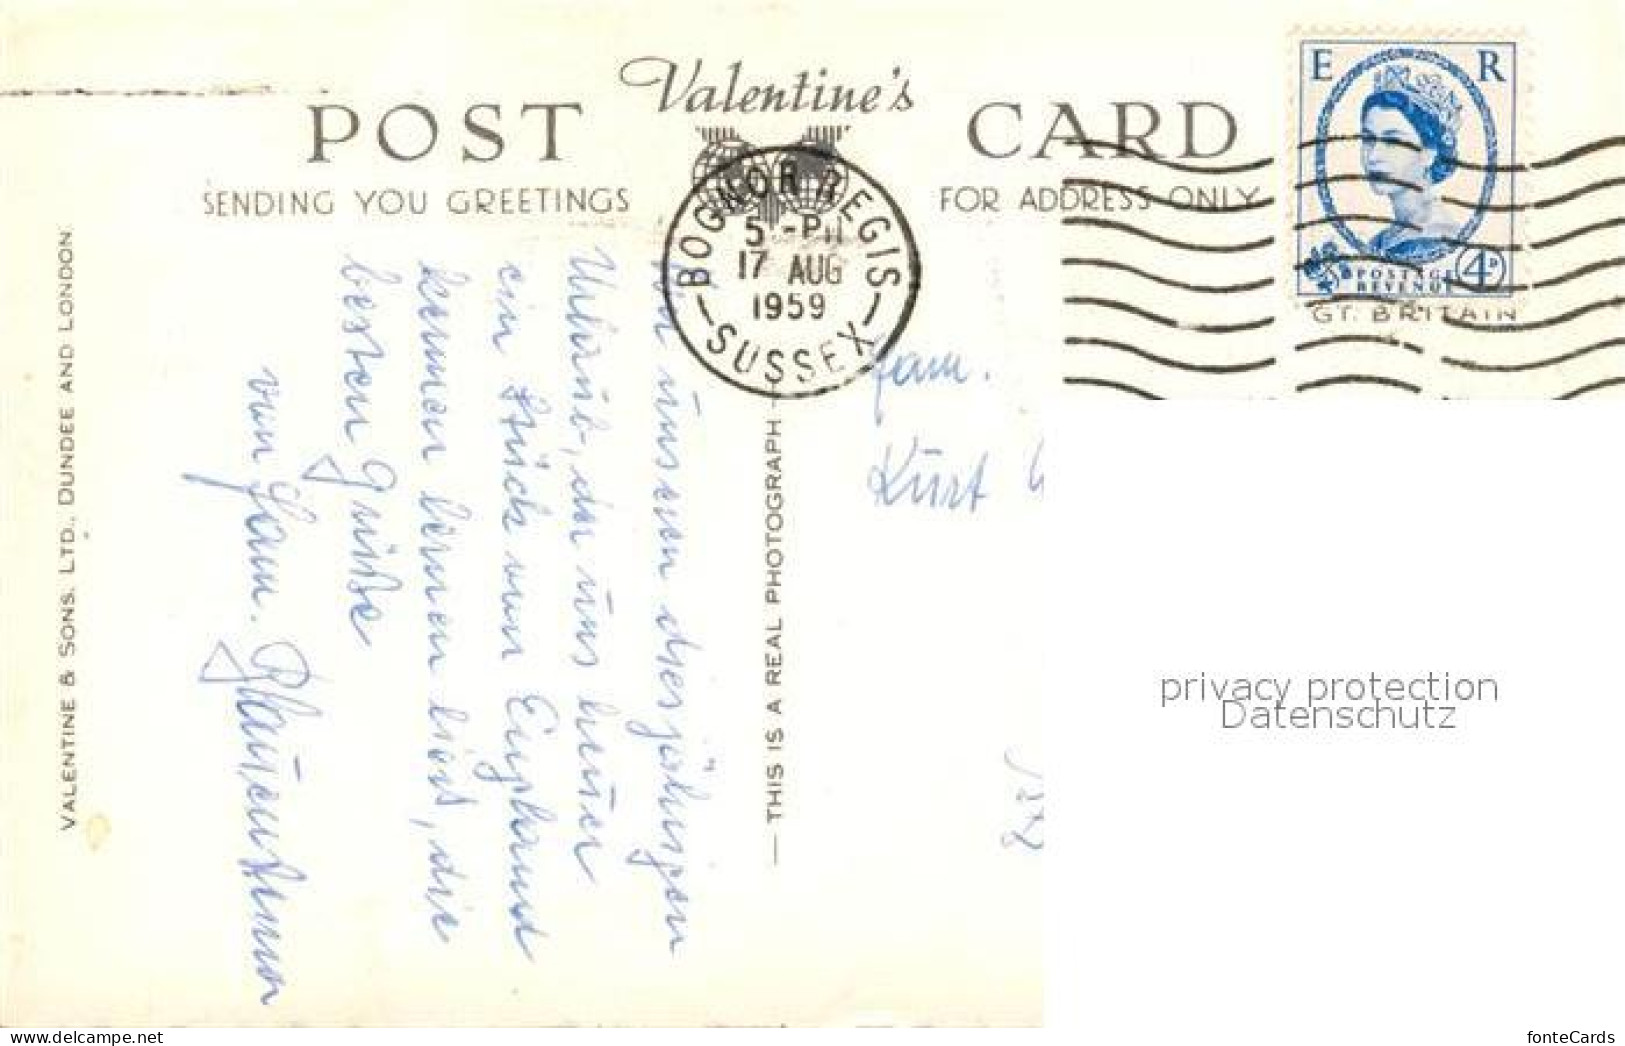 Valentine's
POST CARD
SENDING YOU GREETINGS
FOR ADDRESS ONLY
BOGNOR REGIS
5 - PM
17 AUG
1959
SUSSEX
E R
POSTAGE
REVENUE
4D
GT. BRITAIN
VALENTINE & SONS, LTD., DUNDEE AND LONDON.
THIS IS A REAL PHOTOGRAPH
unseren diesjährigen
Urlaub, der uns heuer
ein Stück von England
kennen lernen liess, die
besten Grüße
von Fam.
Fam.
Kurt
privacy protection
Datenschutz
fonteCards